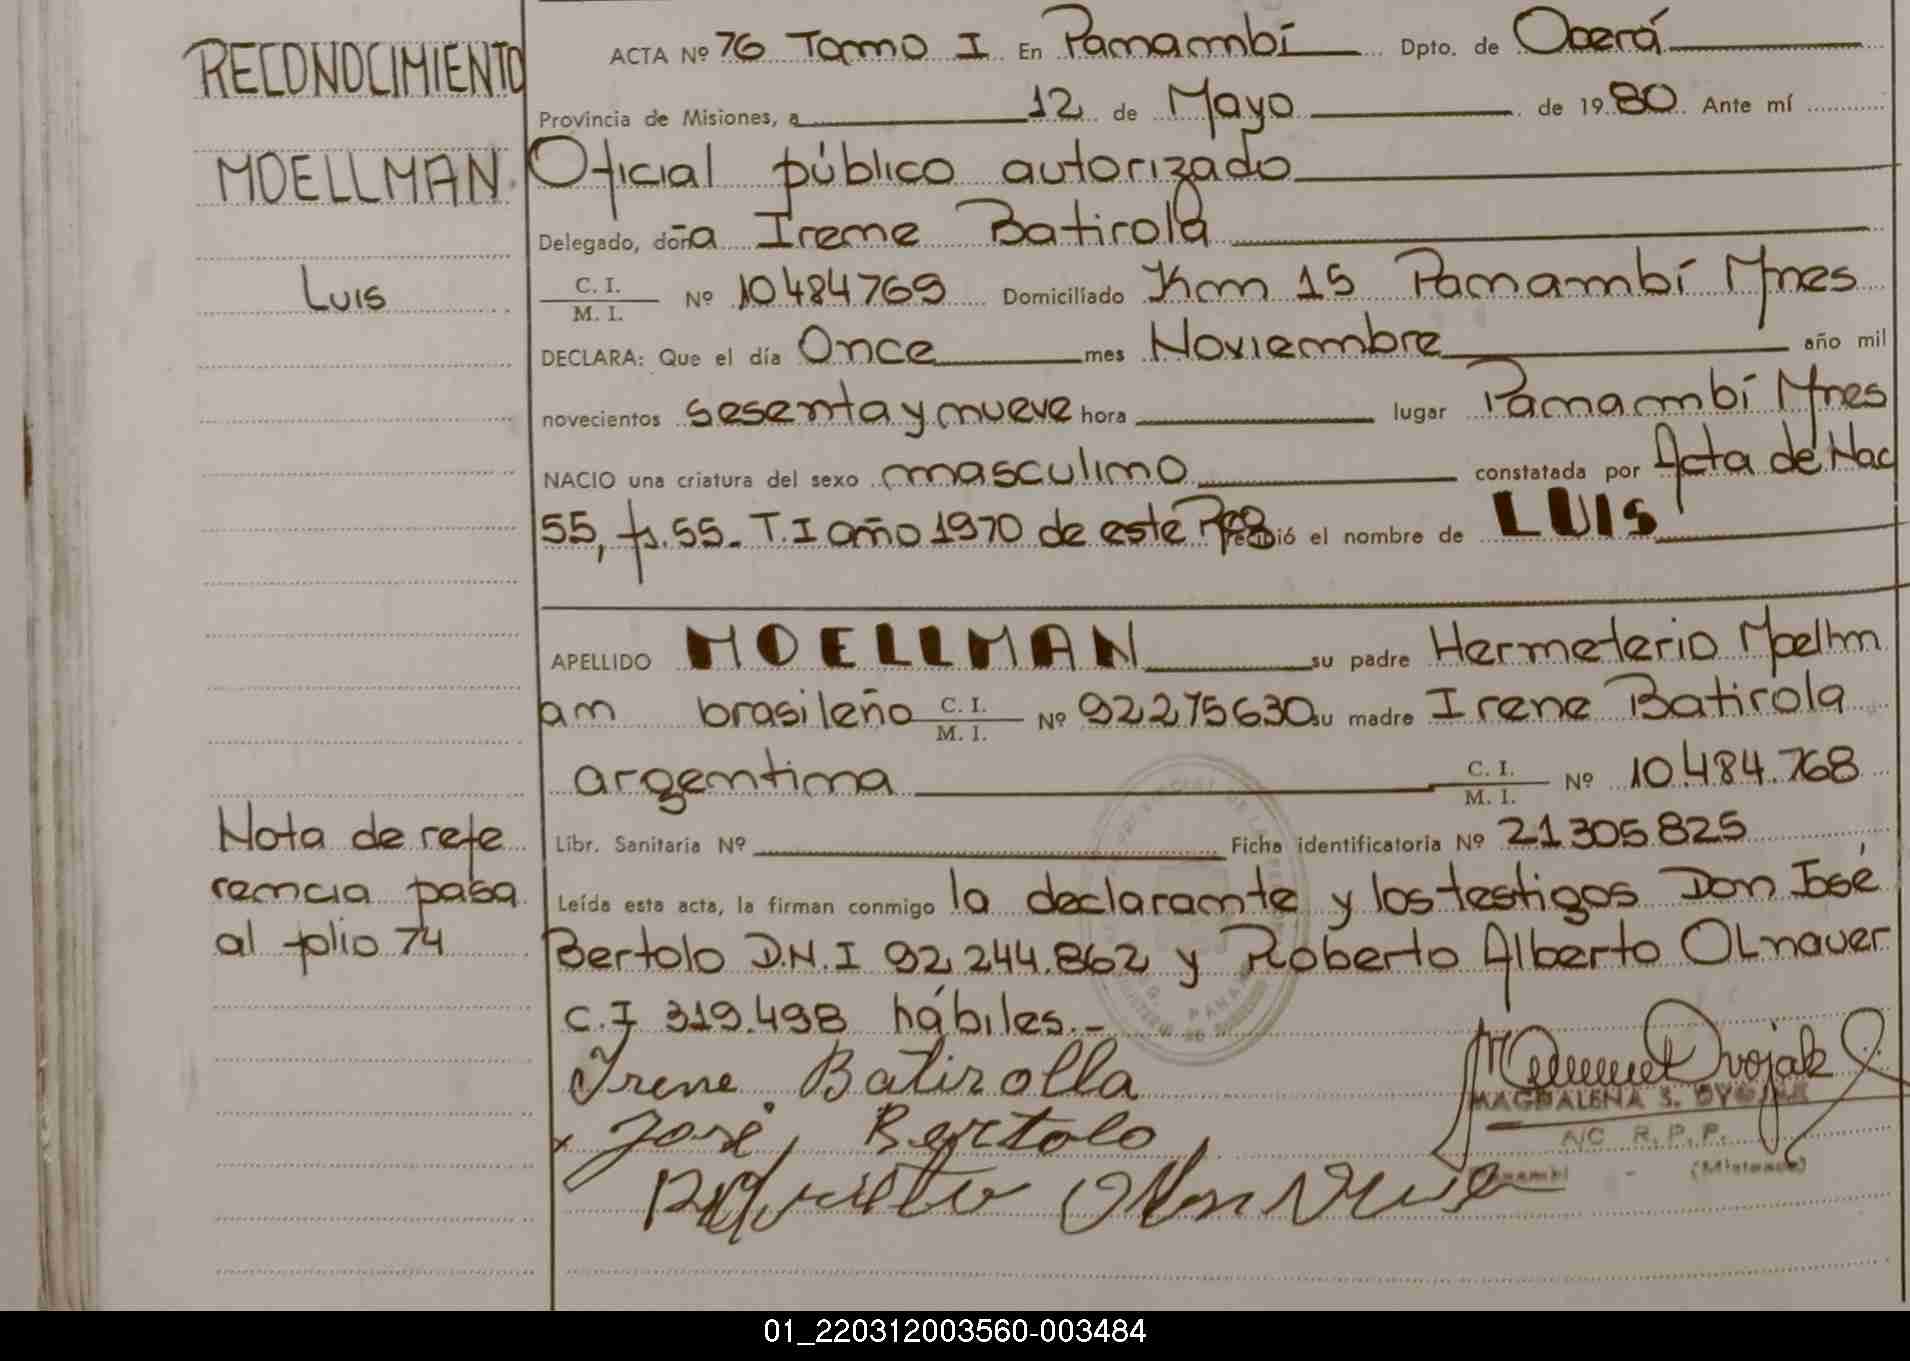 RECONOCIMIENTO
MOELLMAN.
Luis
Nota de refe
rencia pasa
al folio 74
ACTA Nº 76 Tomo I En Panambí Dpto. de Oberá
Provincia de Misiones, a 12 de Mayo de 1980 Ante mí
Oficial público autorizado
Delegado, doña Irene Batirola
C. I. / M. I. Nº 10484769 Domiciliado Km 15 Panambí Mnes
DECLARA: Que el día Once mes Noviembre año mil
novecientos sesenta y nueve hora lugar Panambí Mnes
NACIO una criatura del sexo masculino constatada por Acta de Nac
55, fs. 55. T. I año 1970 de este Reg recibió el nombre de LUIS
APELLIDO MOELLMAN su padre Hermeterio Moellm
an brasileño C. I. / M. I. Nº 92275630 su madre Irene Batirola
argentina C. I. / M. I. Nº 10.484.768
Libr. Sanitaria Nº Ficha identificatoria Nº 21305825
Leída esta acta, la firman conmigo la declarante y los testigos Don José
Bertolo D.N.I 92.244.862 y Roberto Alberto Olnauer
C.I 319.498 hábiles.-
Irene Batirolla
x José Bertolo
MAGDALENA S. DVOJAK
A/C R. P. P.
Panambí - (Misiones)
01_220312003560-003484